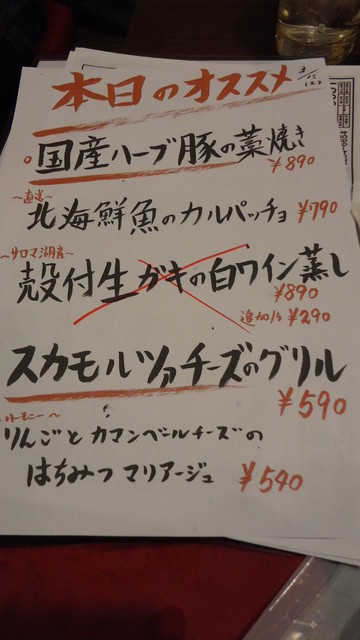 本日のオススメ 3/15(土)
国産ハーブ豚の藁焼き
¥890
~直送~
北海鮮魚のカルパッチョ ¥790
~サロマ湖産~
殻付生ガキの白ワイン蒸し
¥890
追加1ヶ ¥290
スカモルツァチーズのグリル
¥590
りんごとカマンベールチーズの
はちみつマリアージュ ¥540